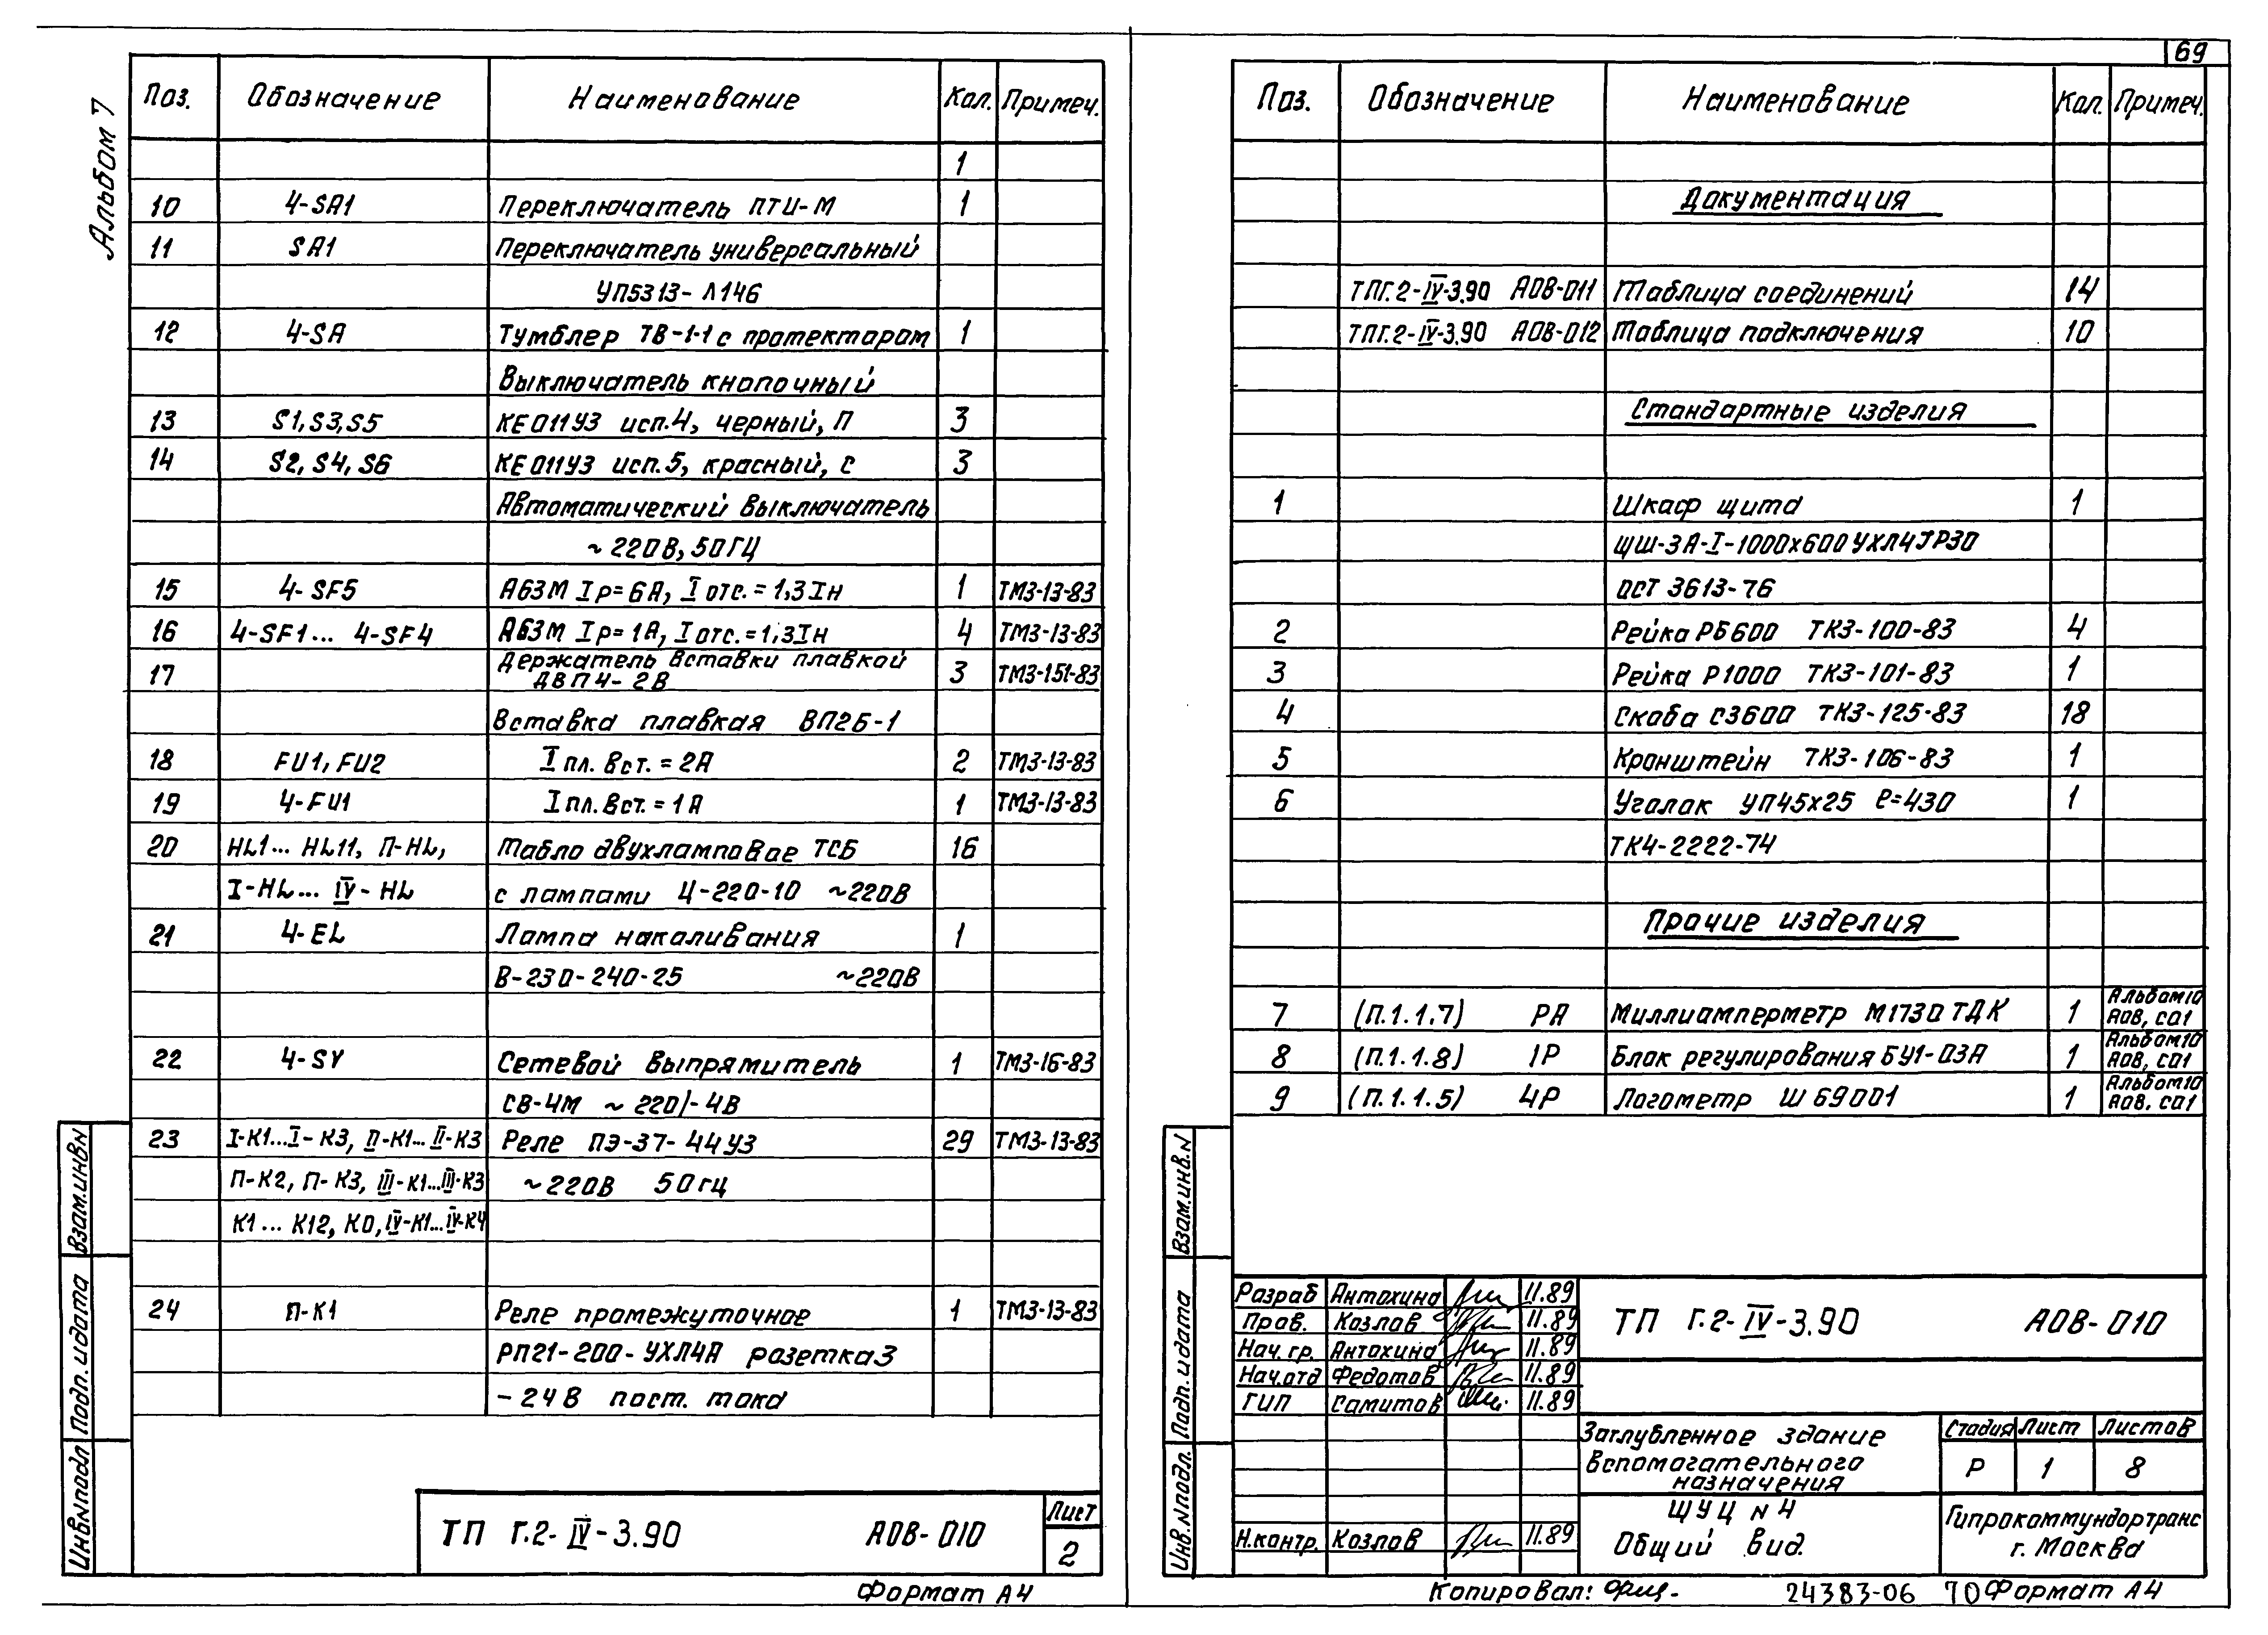 69
Альбом 7
Поз. Обозначение Наименование Кол. Примеч.
1
10 4-SA1 Переключатель ПТИ-М 1
11 SA1 Переключатель универсальный
УП5313-Л146
12 4-SA Тумблер ТВ-1-1 с протектором 1
Выключатель кнопочный
13 S1, S3, S5 КЕ011У3 исп.4, черный, П 3
14 S2, S4, S6 КЕ011У3 исп.5, красный, С 3
Автоматический выключатель
~220В, 50ГЦ
15 4-SF5 А63М Iр=6А, Iотс.=1,3Iн 1 ТМ3-13-83
16 4-SF1... 4-SF4 А63М Iр=1А, Iотс.=1,3Iн 4 ТМ3-13-83
17 Держатель вставки плавкой
ДВП4-2В 3 ТМ3-151-83
Вставка плавкая ВП2Б-1
18 FU1, FU2 Iпл. вст.=2А 2 ТМ3-13-83
19 4-FU1 Iпл. вст.=1А 1 ТМ3-13-83
20 HL1... HL11, П-HL, Табло двухламповое ТСБ 16
I-HL... IV-HL с лампами Ц-220-10 ~220В
21 4-EL Лампа накаливания 1
В-230-240-25 ~220В
22 4-SY Сетевой выпрямитель 1 ТМ3-16-83
СВ-4М ~220/-4В
23 I-К1...I-К3, II-К1...II-К3 Реле ПЭ-37-44У3 29 ТМ3-13-83
П-К2, П-К3, III-К1...III-К3 ~220В 50гц
К1... К12, К0, IV-К1...IV-К4
24 П-К1 Реле промежуточное 1 ТМ3-13-83
РП21-200-УХЛ4А розетка3
-24В пост. тока
Взам.инв.N
Подп. и дата
Инв.Nподл
ТП Г.2-IV-3.90 АОВ-010 Лист
2
Формат А4
Поз. Обозначение Наименование Кол. Примеч.
Документация
ТПГ.2-IV-3.90 АОВ-011 Таблица соединений 14
ТПГ.2-IV-3.90 АОВ-012 Таблица подключения 10
Стандартные изделия
1 Шкаф щита 1
ЩШ-ЗА-I-1000х600УХЛ4JР30
ОСТ 3613-76
2 Рейка РБ600 ТК3-100-83 4
3 Рейка Р1000 ТК3-101-83 1
4 Скоба С3600 ТК3-125-83 18
5 Кронштейн ТК3-106-83 1
6 Уголок УП45х25 ℓ=430 1
ТК4-2222-74
Прочие изделия
7 (П.1.1.7) РА Миллиамперметр М1730ТДК 1 Альбом10
АОВ, СО1
8 (П.1.1.8) 1Р Блок регулирования БУ1-03А 1 Альбом10
АОВ, СО1
9 (П.1.1.5) 4Р Логометр Ш69001 1 Альбом10
АОВ. СО1
Взам.инв.N
Подп. и дата
Инв.Nподл.
Разраб Антохина 11.89
Пров. Козлов 11.89
Нач.гр. Антохина 11.89
Нач.отд Федотов 11.89
ГИП Самитов 11.89
Н.контр. Козлов 11.89
ТП Г.2-IV-3.90 АОВ-010
Заглубленное здание
Вспомогательного
назначения
Стадия Лист Листов
Р 1 8
ЩУЦ N 4
Общий вид.
Гипрокоммундортранс
г. Москва
Копировал: 24383-06 70 Формат А4